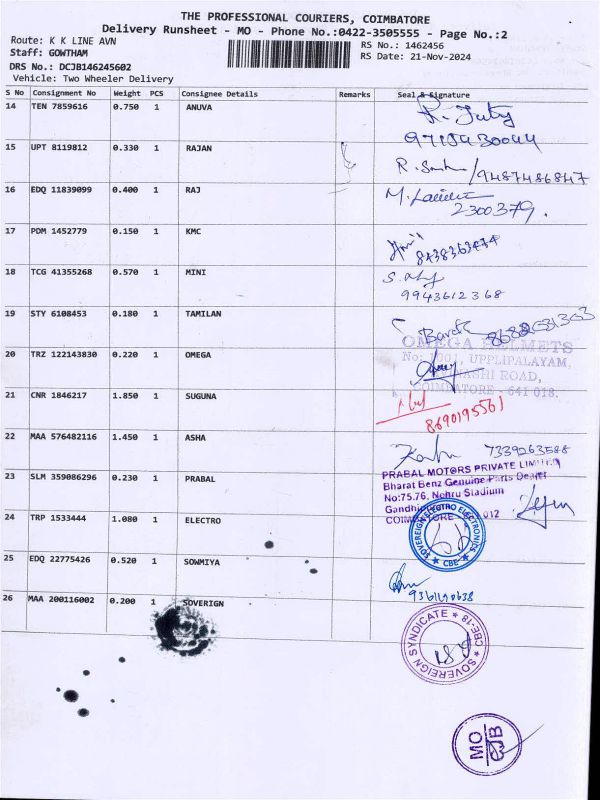 THE PROFESSIONAL COURIERS, COIMBATORE
Delivery Runsheet - MO - Phone No.:0422-3505555 - Page No.:2
Route: K K LINE AVN
Staff: GOWTHAM
RS No.: 1462456
DRS No.: DCJB146245602
RS Date: 21-Nov-2024
Vehicle: Two Wheeler Delivery
S No Consignment No Weight PCS Consignee Details Remarks Seal & Signature
14 TEN 7859616 0.750 1 ANUVA
15 UPT 8119812 0.330 1 RAJAN
16 EDQ 11839099 0.400 1 RAJ
2300379.
17 PDM 1452779 0.150 1 KMC
8438363474
18 TCG 41355268 0.570 1 MINI
9943612368
19 STY 6108453 0.180 1 TAMILAN
OMEGA HELMETS
20 TRZ 122143830 0.220 1 OMEGA
UPPLIPALAYAM,
ROAD,
COIMBATORE - 641 018.
21 CNR 1846217 1.850 1 SUGUNA
8690195561
22 MAA 576482116 1.450 1 ASHA
7339263588
PRABAL MOTORS PRIVATE LIMITED
23 SLM 359086296 0.230 1 PRABAL
Bharat Benz Genuine Parts Dealer
No:75.76, Nehru Stadium
24 TRP 1533444 1.080 1 ELECTRO
012
SOVEREIGN ELECTRO ELECTRONICS
CBE
25 EDQ 22775426 0.520 1 SOWMIYA
26 MAA 200116002 0.200 1 SOVERIGN
SOVEREIGN SYNDICATE CBE-18
MO
CJB